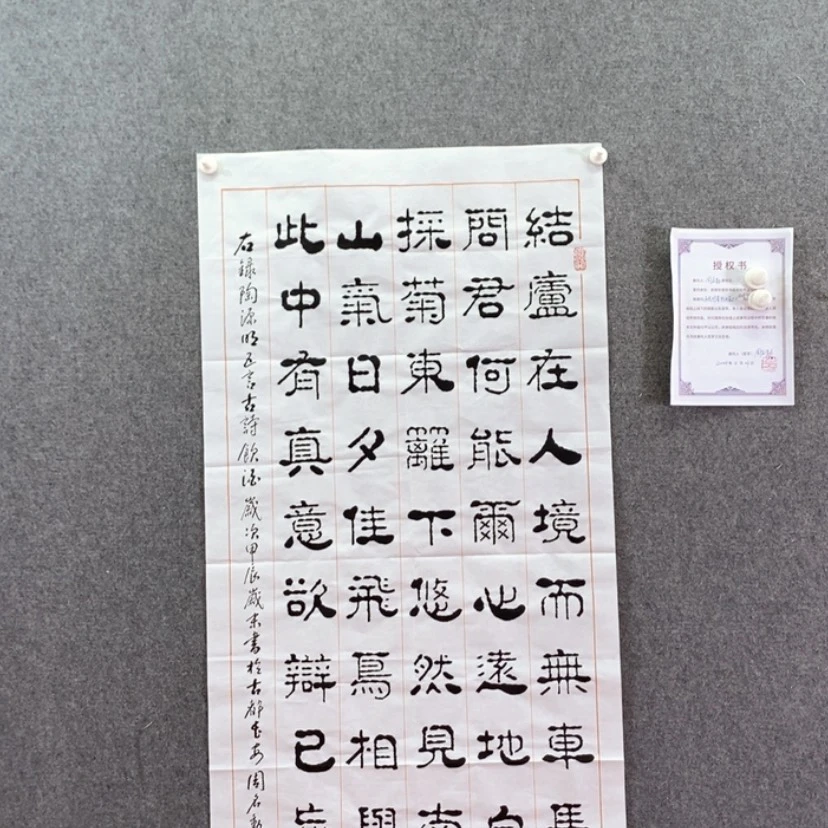 結廬在人境而無車馬
問君何能爾心遠地自
採菊東籬下悠然見南
山氣日夕佳飛鳥相與
此中有真意欲辯已忘
右錄陶淵明五言古詩飲酒歲次甲辰歲末書於古都西安周名
授权书